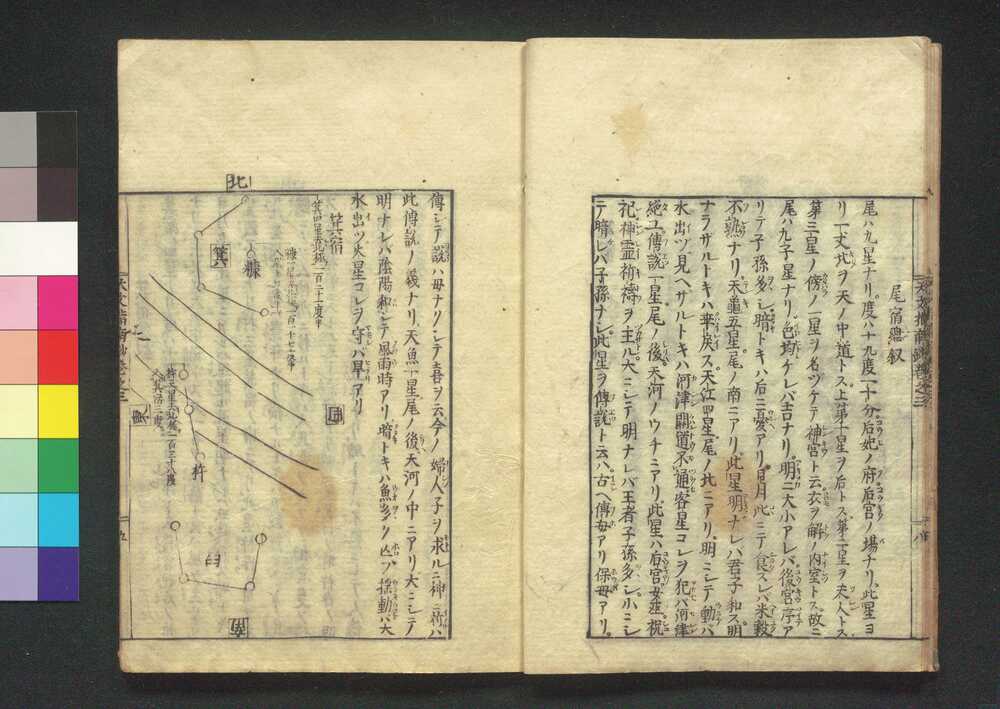 尾宿總叙
尾ハ九星ナリ度ハ十九度二十分后妃ノ府后宮ノ場ナリ此星ヨ
リ一丈北ヲ天ノ中道トス上第一星ヲ后トス第二星ヲ夫人トス
第三星ノ傍ノ一星ヲ名ヅケテ神宮ト云衣ヲ解ノ内室トス故ニ
尾ハ九子星ナリ色均ケレバ吉ナリ明ニ大小アレバ後宮序ア
リテ子孫多シ暗トキハ后ニ憂アリ日月此ニテ食スレバ米穀
不熟ナリ天龜五星尾ノ南ニアリ此星明ナレバ君子和ス明
ナラザルトキハ乖戻ス天江四星尾ノ北ニアリ明ニシテ動バ
水出ヅ見ヘザルトキハ河津關道不通客星コレヲ犯バ河津
絶ユ傳説一星尾ノ後天河ノウチニアリ此星ハ后宮女巫祝
祀神霊祈祷ヲ主ル大ニシテ明ナレバ王者子孫多シ小ニシ
テ暗レバ子孫ナシ此星ヲ傳説ト云ハ古ヘ傳母アリ保母アリ
傳シテ説ハ母ナリシテ喜ヲ云今ノ婦人子ヲ求ルニ神ニ祈ハ
此傳説ノ義ナリ天魚一星尾ノ後天河ノ中ニアリ大ニシテ
明ナレバ陰陽和シテ風雨時アリ暗トキハ魚多ク亡ブ揺動バ大
水出ヅ火星コレヲ守バ旱アリ
箕宿
箕四星去北極一百二十一度半
北
箕
糠
西
杵
臼
南